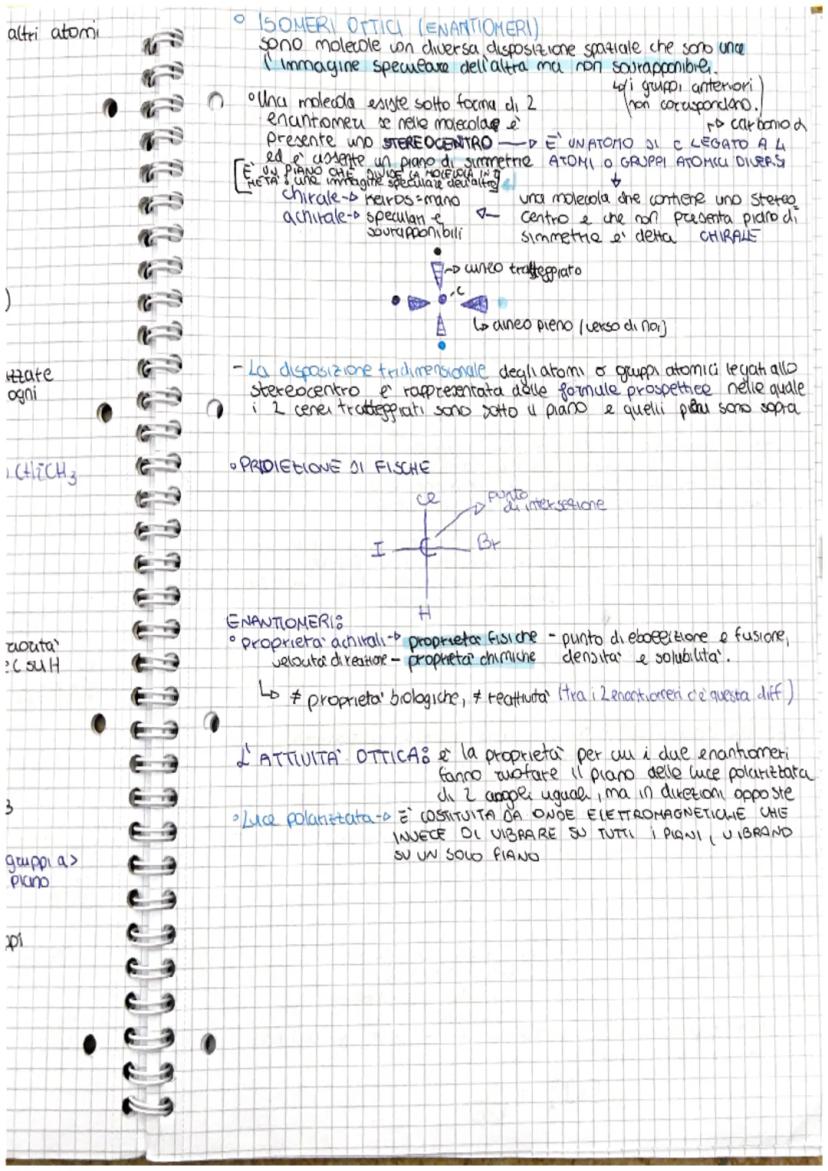 altri atomi
)
izzate
ogni
CH₂CH₃
C su H
3
gruppi a>
piano
ppi
° ISOMERI OTTICI (ENANTIOMERI)
sono molecole con diversa disposizione spaziale che sono una
l'immagine speculare dell'altra ma non sovrapponibili.
↳ (i gruppi anteriori
non corrispondono.)
° Una molecola esiste sotto forma di 2
enantomeri se nelle molecolae è
presente uno STEREOCENTRO → E' UN ATOMO DI C LEGATO A 4
↱ carbonio α
ed e' assente un piano di simmetrie ATOMI O GRUPPI ATOMICI DIVERSI
[E' UN PIANO CHE DIVIDE LA MOLECOLA IN
META': una immagine speculare dell'altra]
chirale → keiros = mano
achirale → speculari e
sovrapponibili
una molecola che contiene uno stereo
centro e che non presenta piano di
simmetrie e' detta CHIRALE
→ cuneo tratteggiato
C
↳ cuneo pieno (verso di noi)
- La disposizione tridimensionale degli atomi o gruppi atomici legati allo
stereocentro e' rappresentata dalle formule prospettice nelle quale
i 2 cenei tratteggiati sono sotto il piano e quelli sono sopra
° PROIEZIONE DI FISCHE
Cl
punto
di intersezione
I C Br
H
ENANTIOMERI:
° proprietà achirali → proprietà fisiche - punto di ebollizione e fusione,
velocità di reazione - proprietà chimiche densità e solubilità.
↳ ≠ proprietà biologiche, ≠ reattività (tra i 2 enantiomeri c'è questa diff.)
L'ATTIVITA' OTTICA: è la proprietà per cui i due enantiomeri
fanno ruotare il piano delle luce polarizzata
di 2 angoli uguali, ma in direzioni opposte
° Luce polarizzata → E' COSTITUITA DA ONDE ELETTROMAGNETICHE CHE
INVECE DI VIBRARE SU TUTTI I PIANI, VIBRANO
SU UN SOLO PIANO